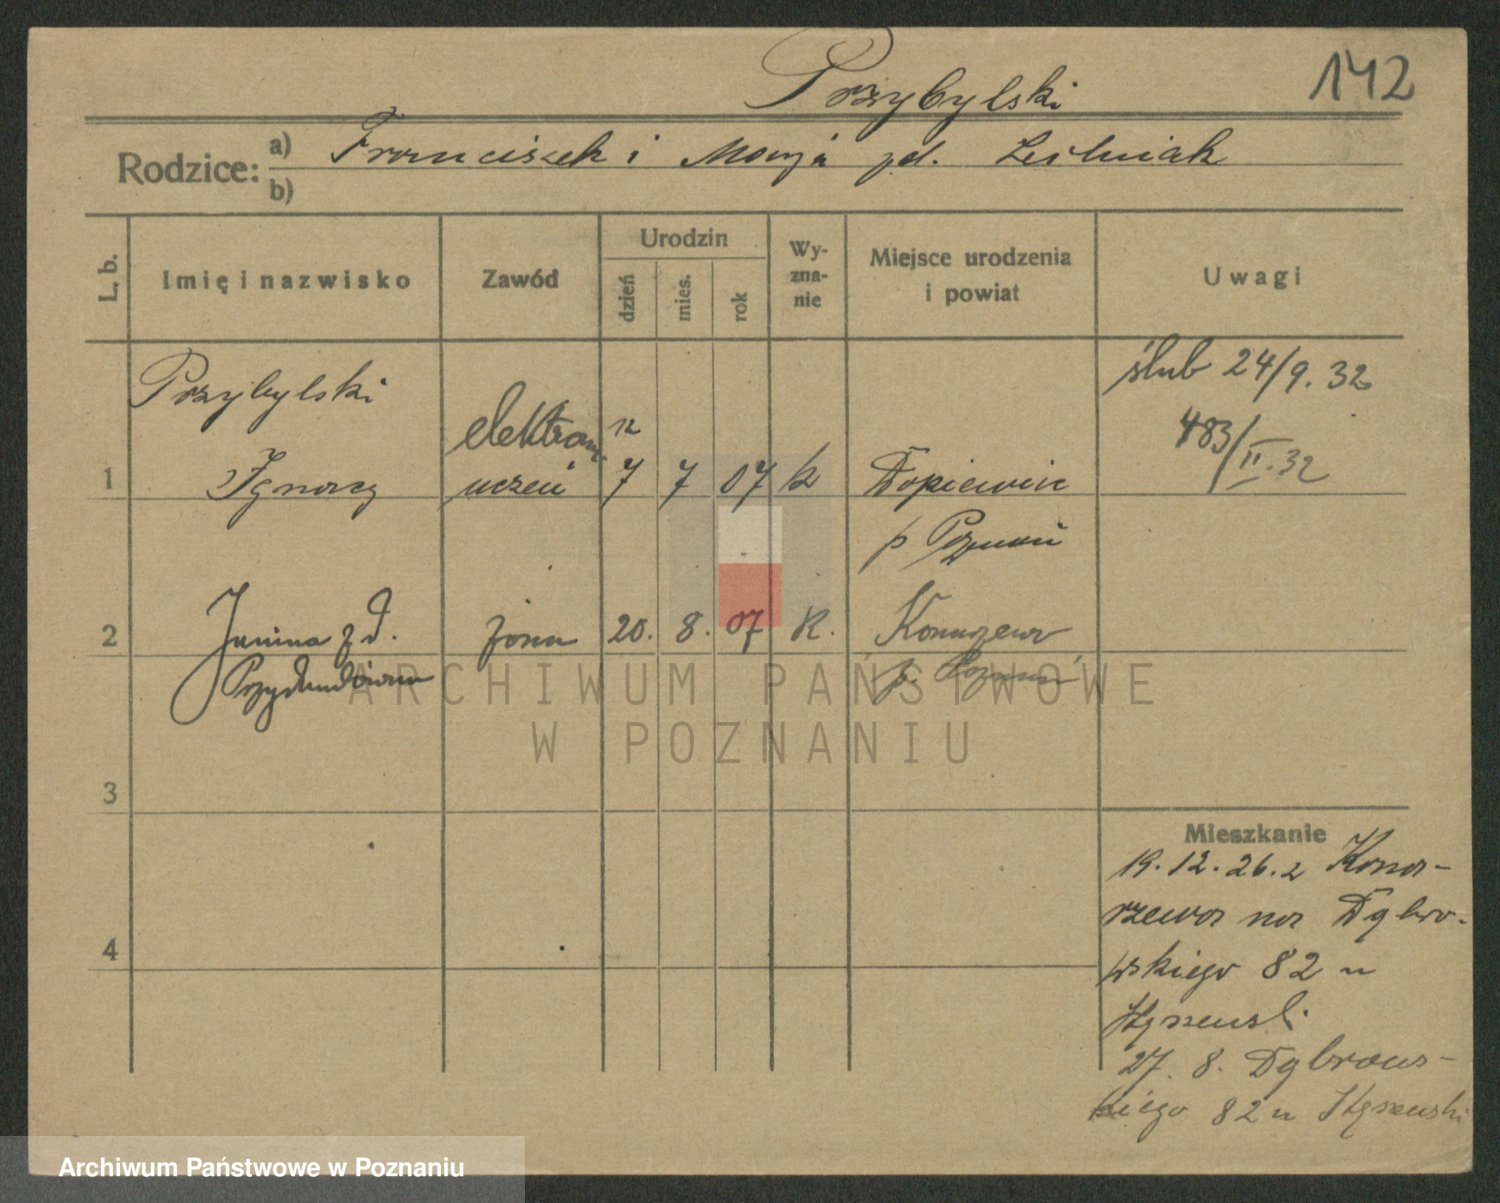 Przybylski
142
Rodzice:
a) Franciszek i Marja zd. Leśniak
b)
L. b.
Imię i nazwisko
Zawód
Urodzin
dzień
mies.
rok
Wy-
zna-
nie
Miejsce urodzenia
i powiat
Uwagi
Przybylski
elektrom.
12
ślub 24/9. 32
483/II.32
1 Ignacy uczeń 7 7 07 k Dopiewiec
p Poznań
2 Janina z d. żona 20. 8. 07 K. Konarzewo
p. Poznań
ARCHIWUM PAŃSTWOWE
W POZNANIU
3
4
Mieszkanie
19.12.26. z Kona-
rzewa na Dąbro-
wskiego 82 u
27. 8. Dąbrows-
kiego 82 u
Archiwum Państwowe w Poznaniu